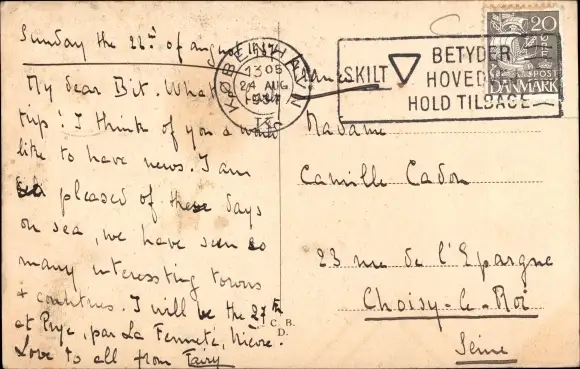 Sunday the 22nd of august 1937
My dear Bit. What
trip! I think of you & would
like to have news. I am
so pleased of these days
on sea, we have seen so
many interessting towns
+ countries. I will be the 27th
at Prye, par La Fermeté, Nièvre.
Love to all from Fairy
C. B.
D.
KØBENHAVN
1305
24 AUG
1937
SKILT
BETYDER
HOVED
HOLD TILBAGE
20
POST
DANMARK
Madame
Camille Cadon
23 rue de l'Epargne
Choisy-le-Roi
Seine